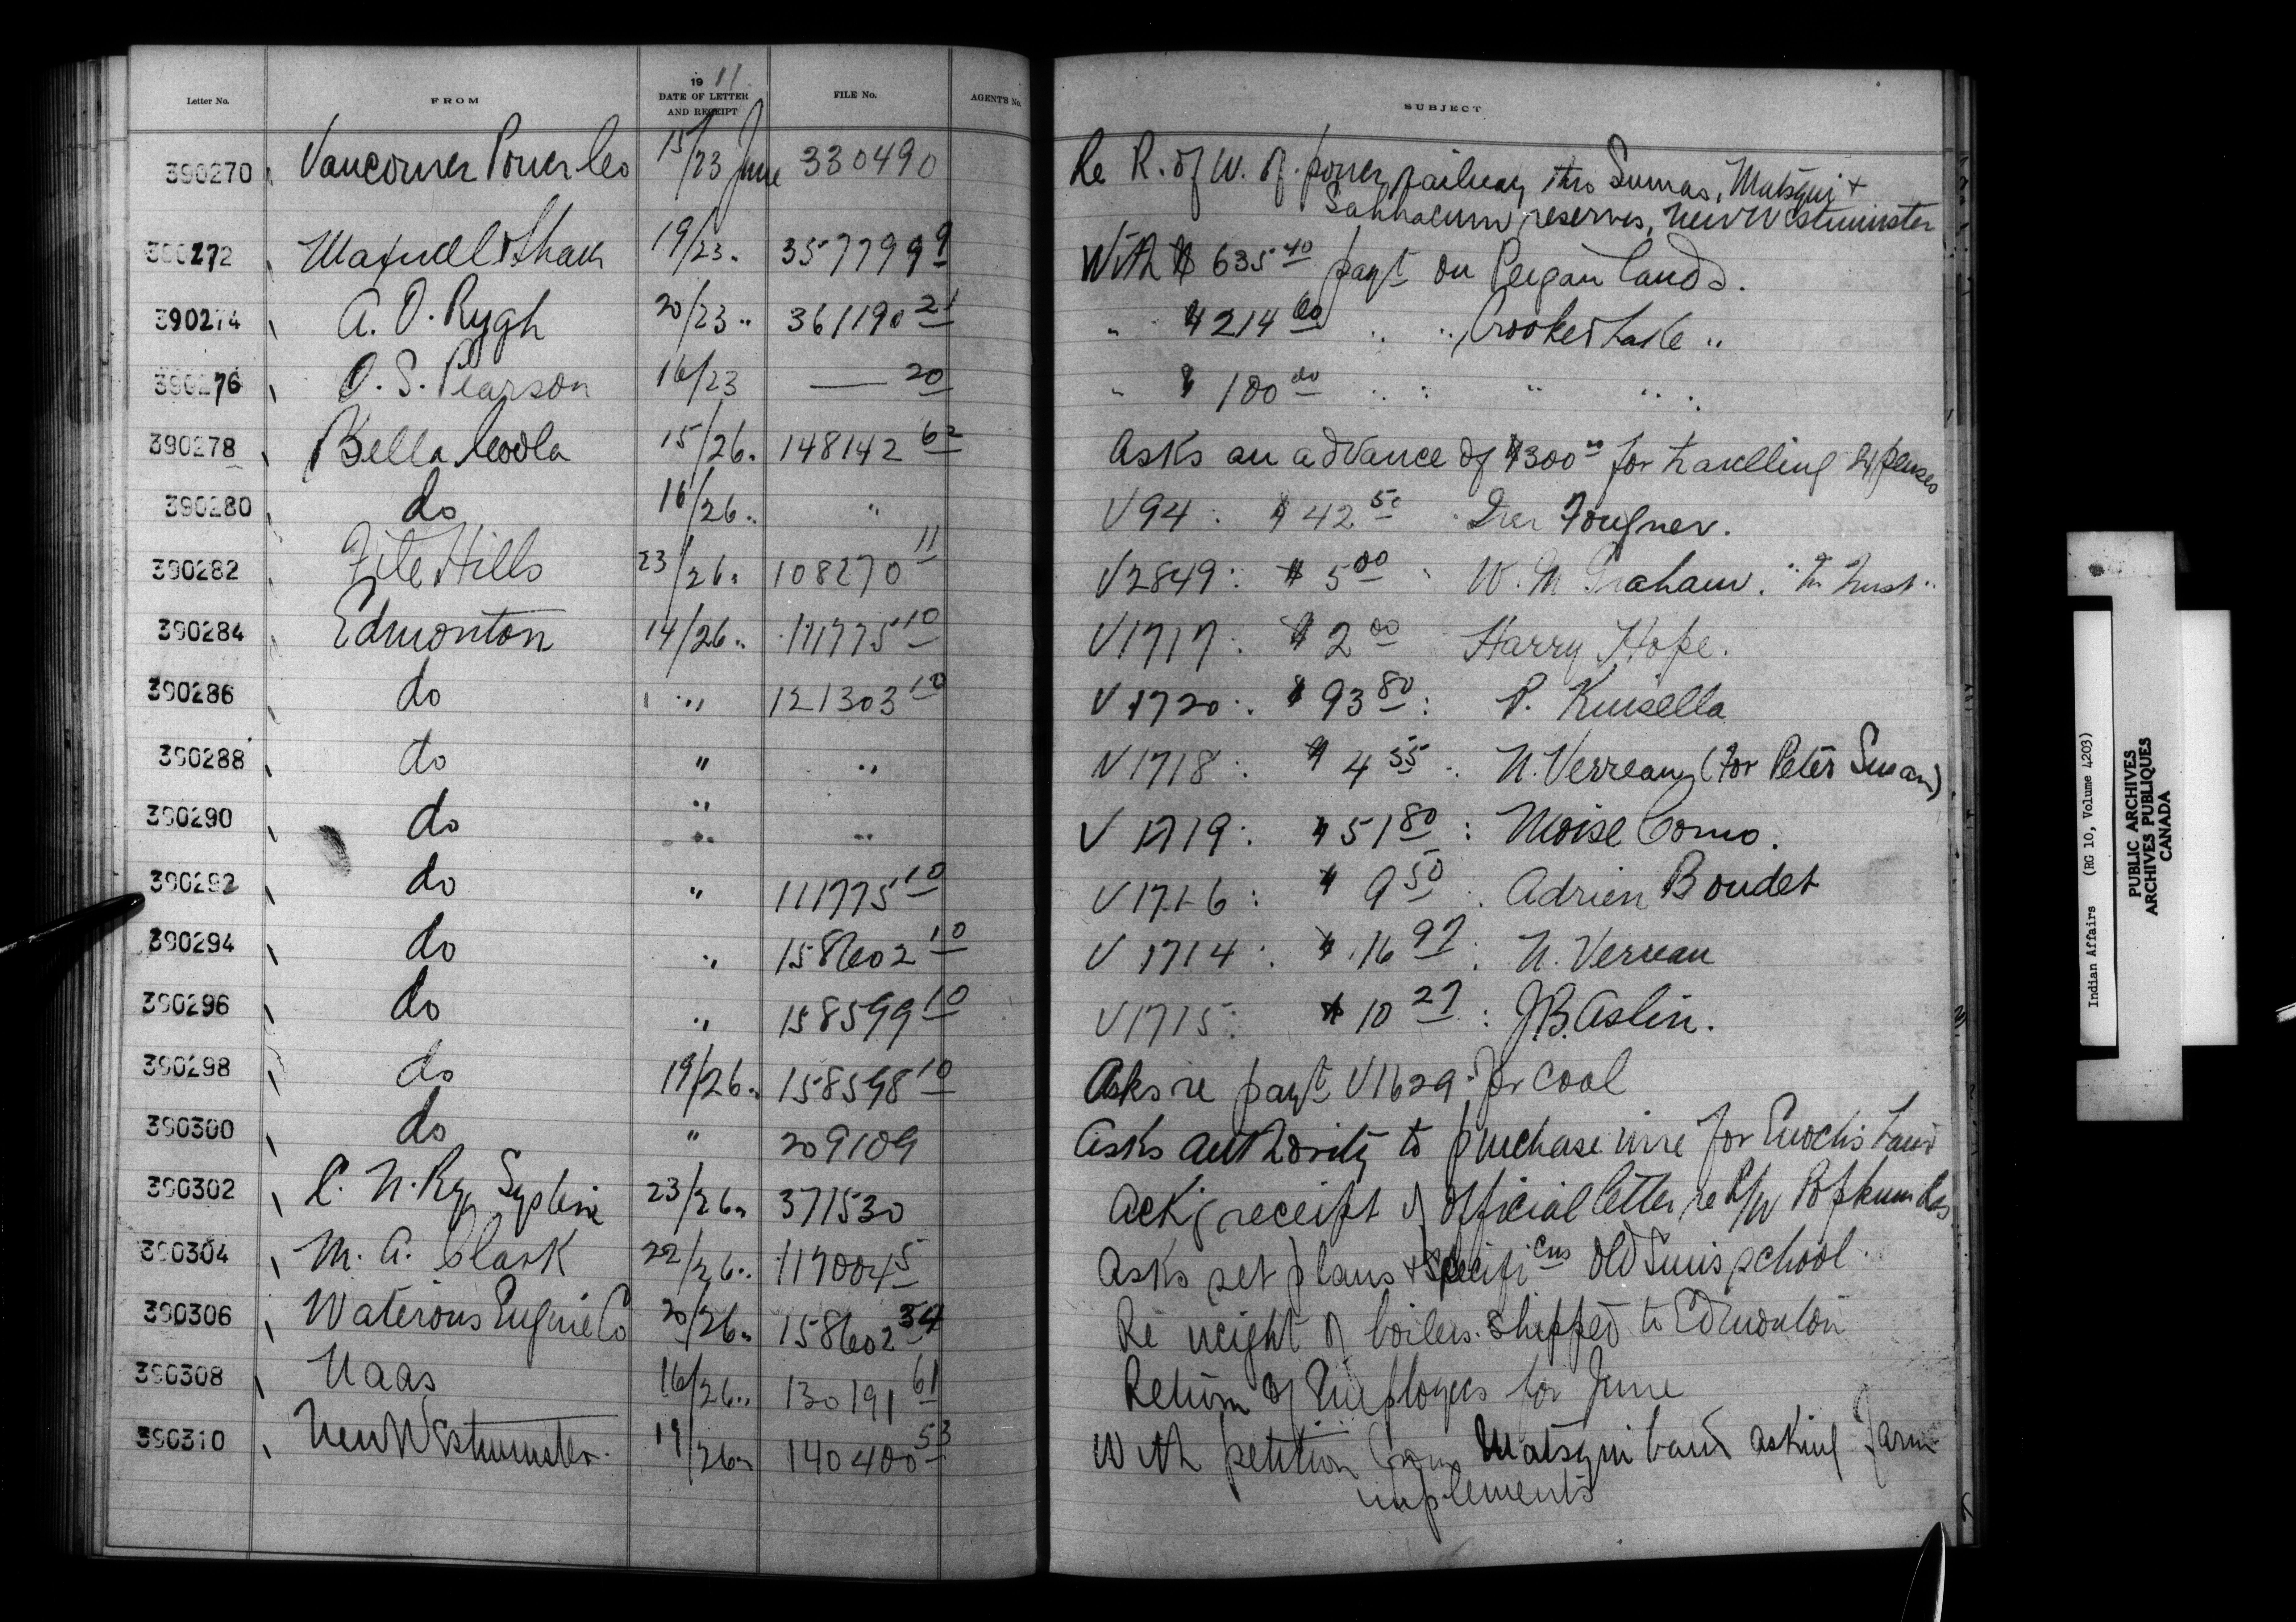 Letter No. FROM 1911 DATE OF LETTER AND RECEIPT FILE No. AGENT'S No. SUBJECT
390270 Vancouver Power Co 15/23 June 330490 Re R. of W. of power railway thro Sumas, Matsqui +
Sahhacum reserves, New Westminster
390272 Maxwell & Shaw 19/23 " 357799 9 With $635 40 payt on Peigan lands.
390274 A. O. Rygh 20/23 " 361190 21 " $214 60 " " Crooked Lake "
390276 O. S. Pearson 16/23 — 20 " $100 00 " " " "
390278 Bella Coola 15/26 " 148142 62 Asks an advance of $300 00 for travelling expenses
390280 do 16/26 " " V 94 : $42 50 : Iver Fougner.
390282 File Hills 23/26 " 108270 11 V 2849 : $5 00 : W. M. Graham. "In Trust"
390284 Edmonton 14/26 " 111775 10 V 1717 : $2 00 Harry Hope.
390286 do " " 121303 10 V 1720 : $93 80 : P. Kinsella
390288 do " " V 1718 : $4 55 : N. Verreau (for Peter Susan)
390290 do " " V 1719 : $51 80 : Moise Como.
390292 do " 111775 10 V 1716 : $9 50 : Adrien Boudet
390294 do " 158602 10 V 1714 : $16 97 : N. Verreau
390296 do " 158599 10 V 1715 : $10 27 : J. B. Aslin.
390298 do 19/26 " 158598 10 Asks re payt V 1629 for Coal
390300 do " 209109 Asks authority to purchase wire for Enoch's band
390302 C. N. Ry System 23/26 " 371530 Ackg receipt of official letter re R/W Popkum Res
390304 M. A. Clark 22/26 " 117004 5 Asks set plans + specifi cns Old Suns school.
390306 Waterous Engine Co 20/26 " 158602 34 Re weight of boilers shipped to Edmonton
390308 Naas 16/26 " 130191 61 Return of Employees for June
390310 New Westminster. 19/26 " 140400 53 With petition from Matsqui band asking farm
implements
Indian Affairs (RG 10, Volume 4203)
PUBLIC ARCHIVES
ARCHIVES PUBLIQUES
CANADA